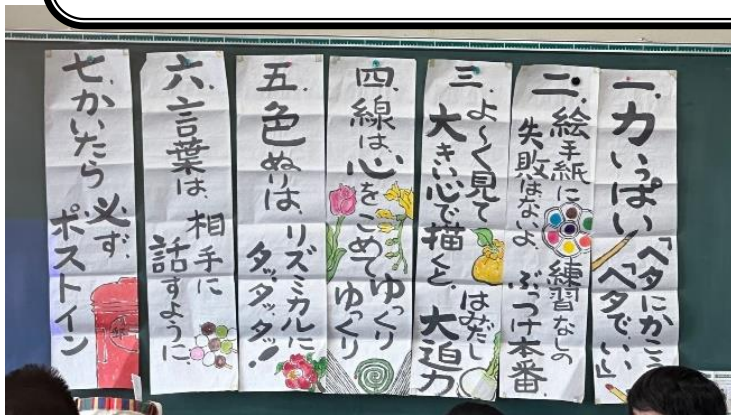 一、力いっぱい
「ヘタにかこう
「ヘタでいい」
二、絵手紙に
失敗はないよ
練習なしの
ぶっつけ本番
三、よ〜く見て
大きい心で描くと
はみだし
大迫力
四、線は、心を
こめてゆっくり
ゆっくり
五、色ぬりは、
リズミカルに
タッタッタッ!
六、言葉は、
相手に
話すように
七、かいたら
必ず、
ポストイン